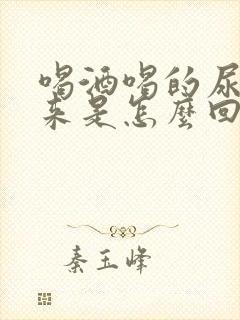 喝酒喝的尿
来是怎麼回
秦玉峰